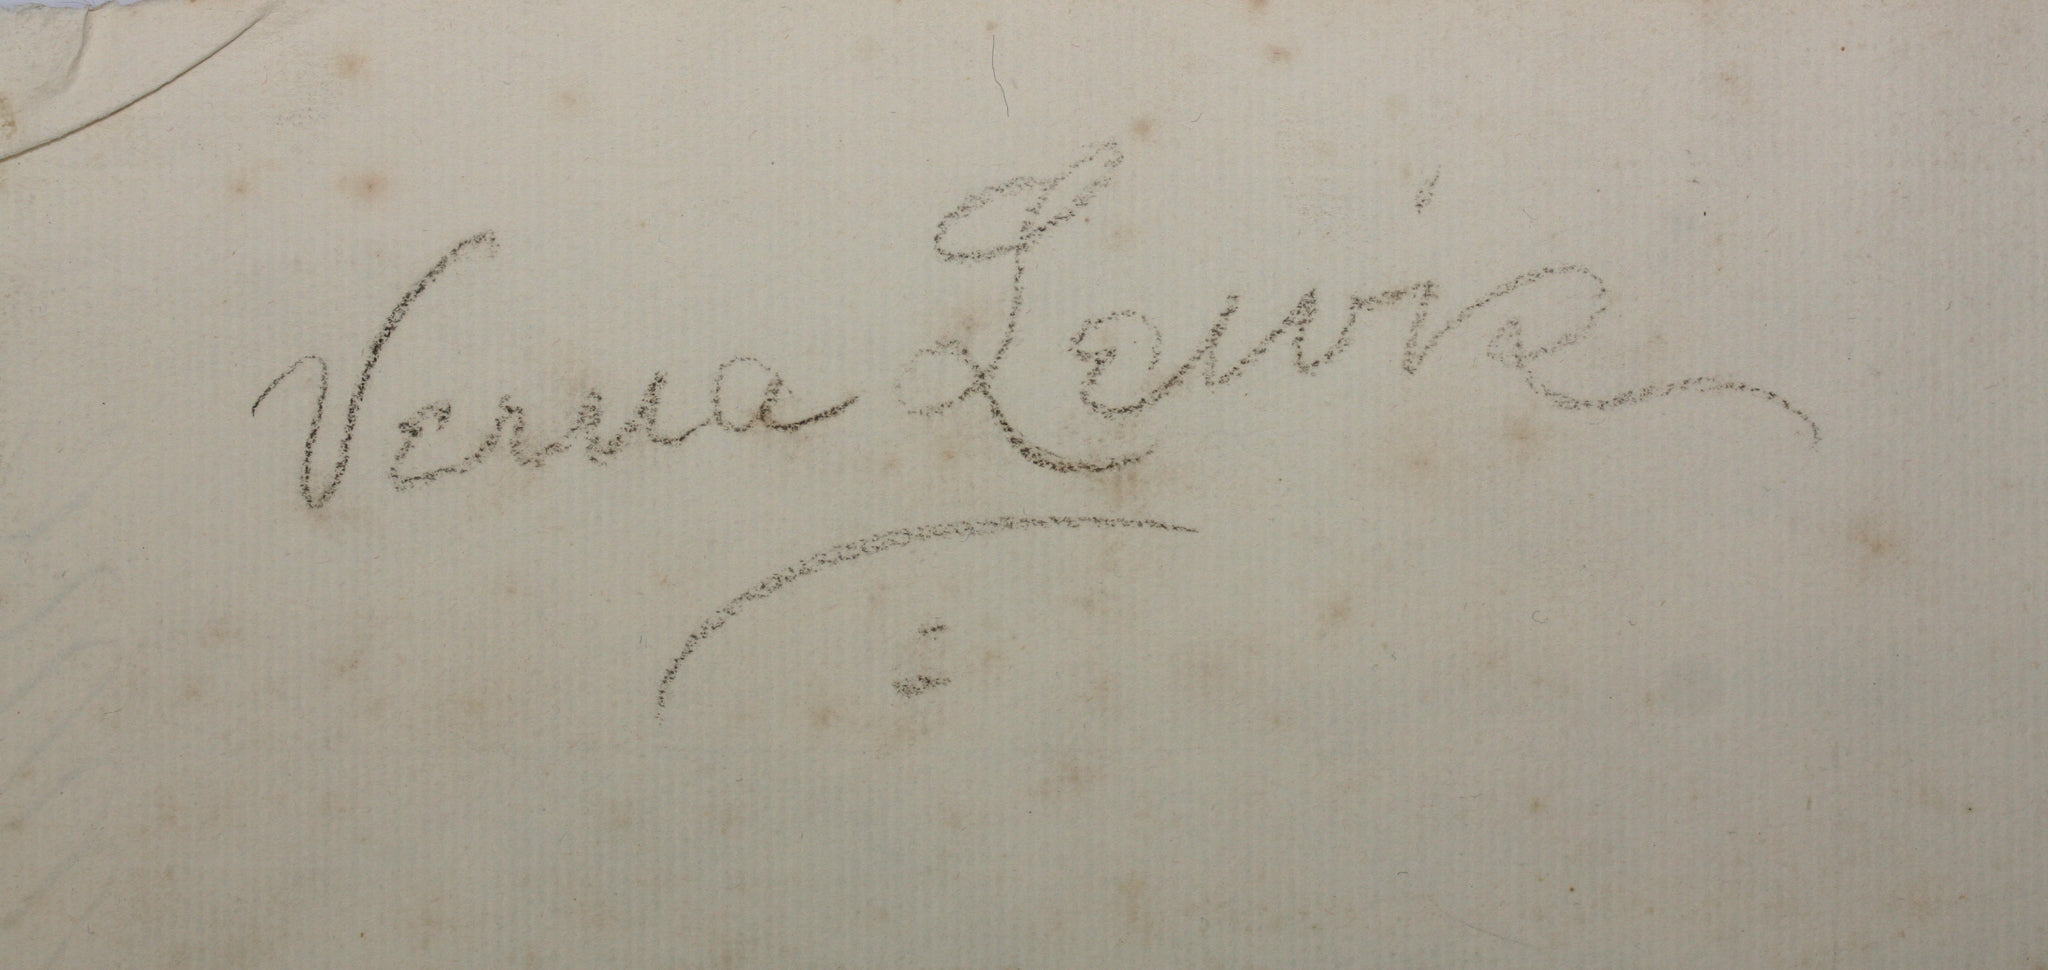 Verna Lewis